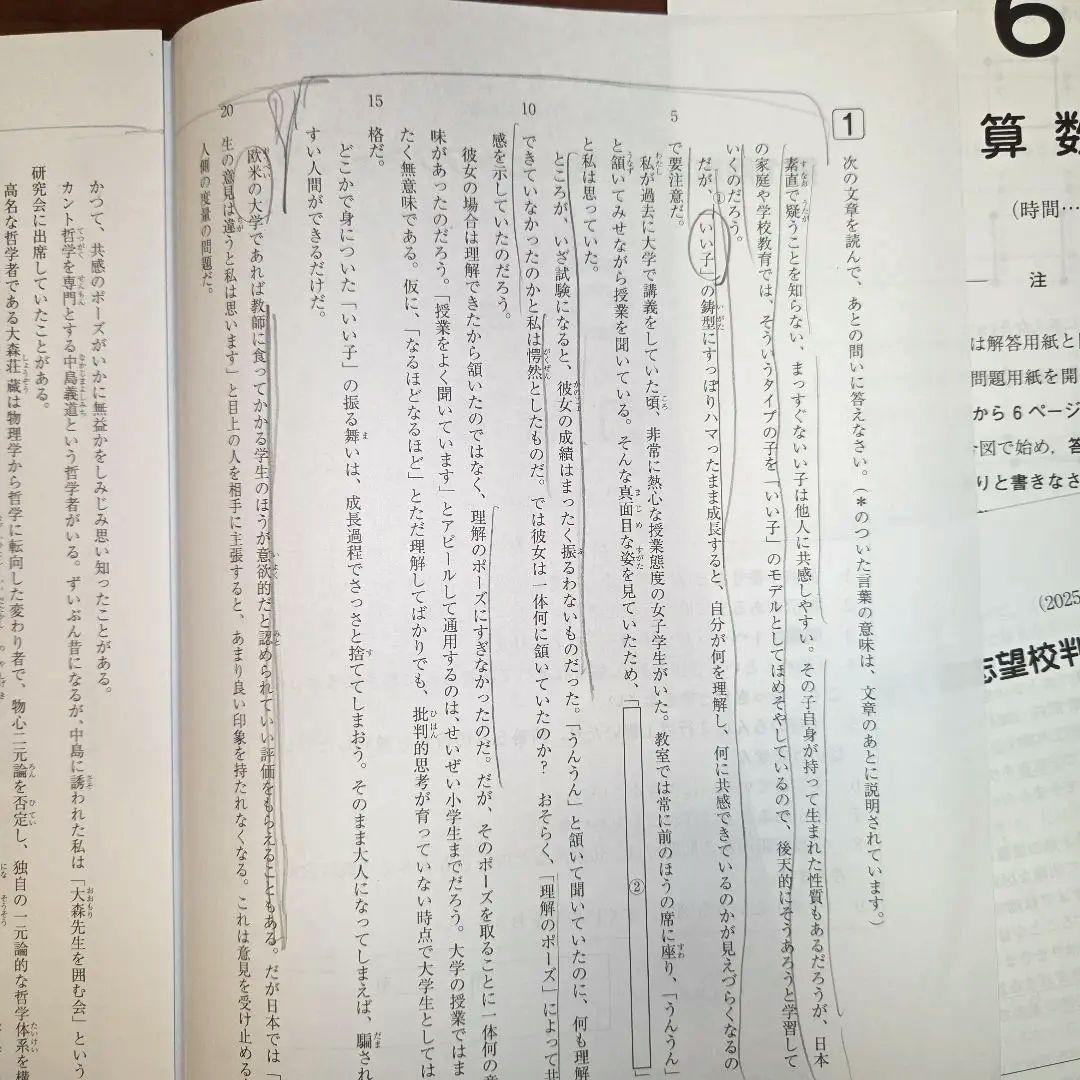 6
算数
(時間…
注
は解答用紙と
問題用紙を開
から6ページ
図で始め，答
りと書きなさ
(2025
志望校判
1
次の文章を読んで、あとの問いに答えなさい。(＊のついた言葉の意味は、文章のあとに説明されています。)
素直で疑うことを知らない、まっすぐないい子は他人に共感しやすい。その子自身が持って生まれた性質もあるだろうが、日本
の家庭や学校教育では、そういうタイプの子を「いい子」のモデルとしてほめそやしているので、後天的にそうあろうと学習して
いくのだろう。
だが、①「いい子」の鋳型にすっぽりハマったまま成長すると、自分が何を理解し、何に共感できているのかが見えづらくなるの
5
で要注意だ。
私が過去に大学で講義をしていた頃、非常に熱心な授業態度の女子学生がいた。教室では常に前のほうの席に座り、「うんうん」
と頷いてみせながら授業を聞いている。そんな真面目な姿を見ていたため、「②」
と私は思っていた。
ところが、いざ試験になると、彼女の成績はまったく振るわないものだった。「うんうん」と頷いて聞いていたのに、何も理解
10
できていなかったのかと私は愕然としたものだ。では彼女は一体何に頷いていたのか？　おそらく、「理解のポーズ」によって共
感を示していたのだろう。
彼女の場合は理解できたから頷いたのではなく、理解のポーズにすぎなかったのだ。だが、そのポーズを取ることに一体何の意
味があったのだろう。「授業をよく聞いています」とアピールして通用するのは、せいぜい小学生までだろう。大学の授業ではま
たく無意味である。仮に、「なるほどなるほど」とただ理解してばかりでも、批判的思考が育っていない時点で大学生としては
15
格だ。
どこかで身についた「いい子」の振る舞いは、成長過程でさっさと捨ててしまおう。そのまま大人になってしまえば、騙され
すい人間ができるだけだ。
欧米の大学であれば教師に食ってかかる学生のほうが意欲的だと認められていい評価をもらえることもある。だが日本では「
20
生の意見は違うと私は思います」と目上の人を相手に主張すると、あまり良い印象を持たれなくなる。これは意見を受け止める
人側の度量の問題だ。
かつて、共感のポーズがいかに無益かをしみじみ思い知ったことがある。
カント哲学を専門とする中島義道という哲学者がいる。ずいぶん昔になるが、中島に誘われた私は「大森先生を囲む会」という
研究会に出席していたことがある。
高名な哲学者である大森荘蔵は物理学から哲学に転向した変わり者で、物心二元論を否定し、独自の一元論的な哲学体系を構